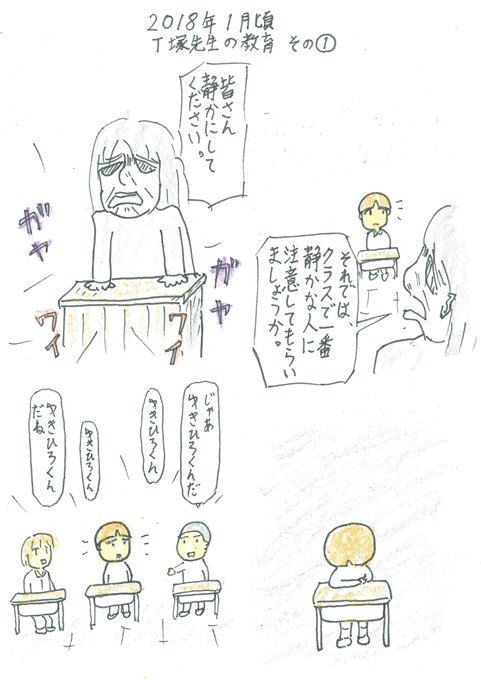 2018年1月頃
T塚先生の教育 その①
皆さん
静かにして
ください。
ガヤ
ガヤ
ワイ
ワイ
それでは、
クラスで一番
静かな人に
注意してもらい
ましょうか。
じゃあ
ゆきひろくんだ
ゆきひろくん
ゆきひろくん
ゆきひろくん
だね